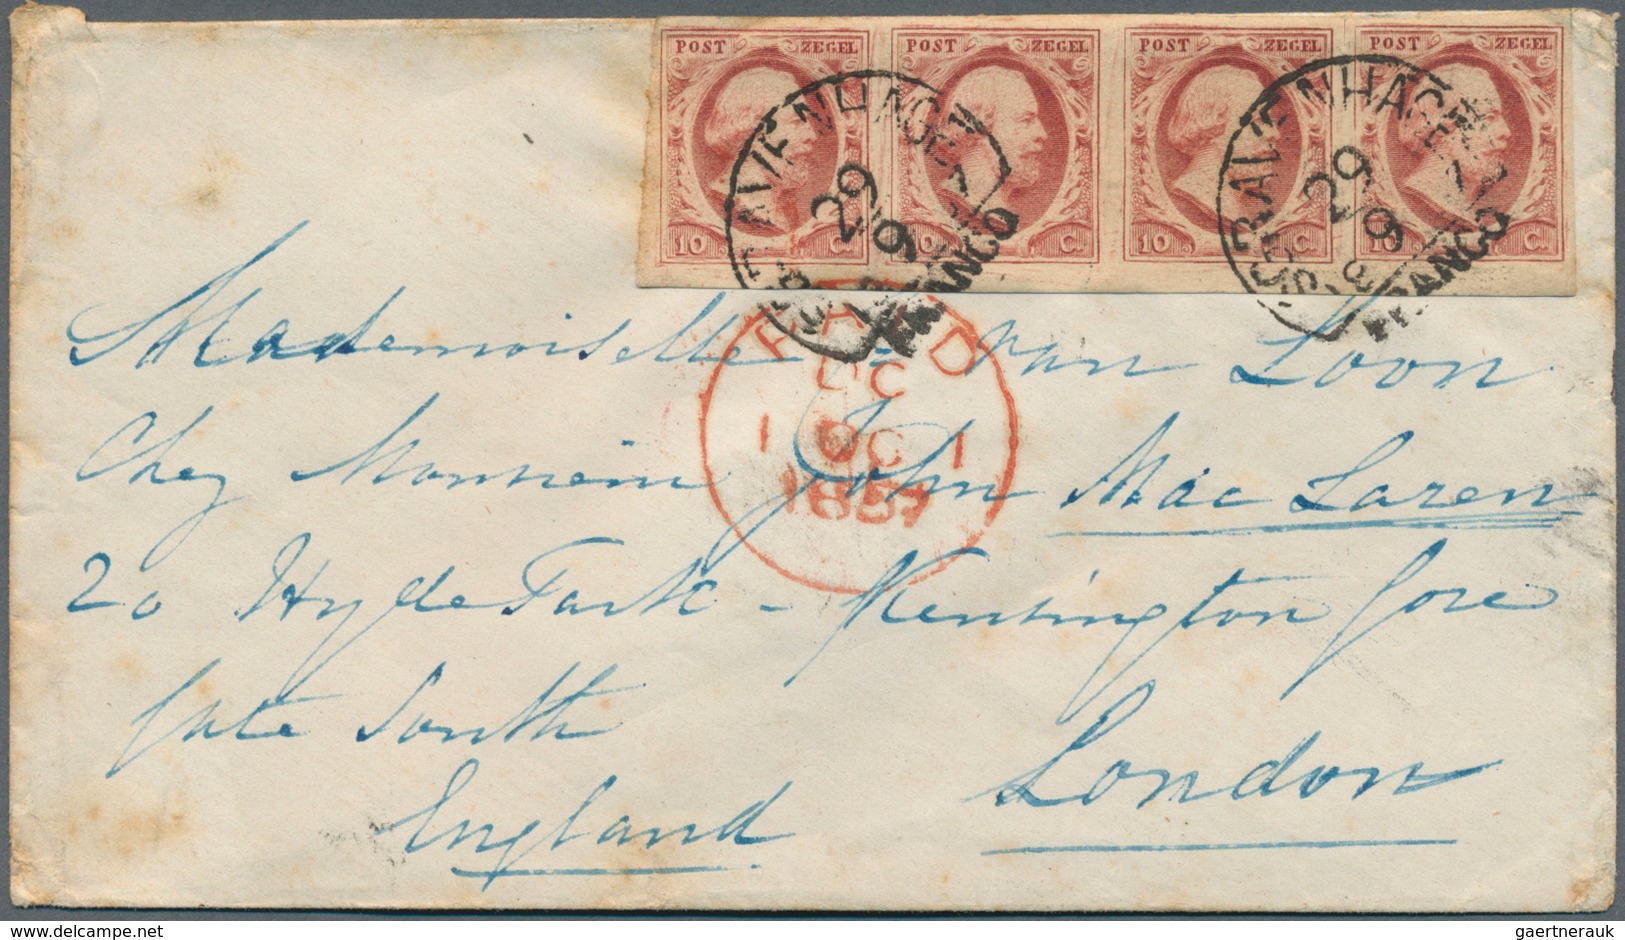 POST ZEGEL POST ZEGEL POST ZEGEL POST ZEGEL
10 C. 10 C. 10 C. 10 C.
'S GRAVENHAGE
29
9
FRANCO
'S GRAVENHAGE
29
9
FRANCO
PAID
OC
1 OC 1
1857
Mademoiselle van Loon
Chez Monsieur John Mac Laren
20 Hyde Park - Kensington Gore
Gate South
London
England
delcampe.net
gaertnerauk